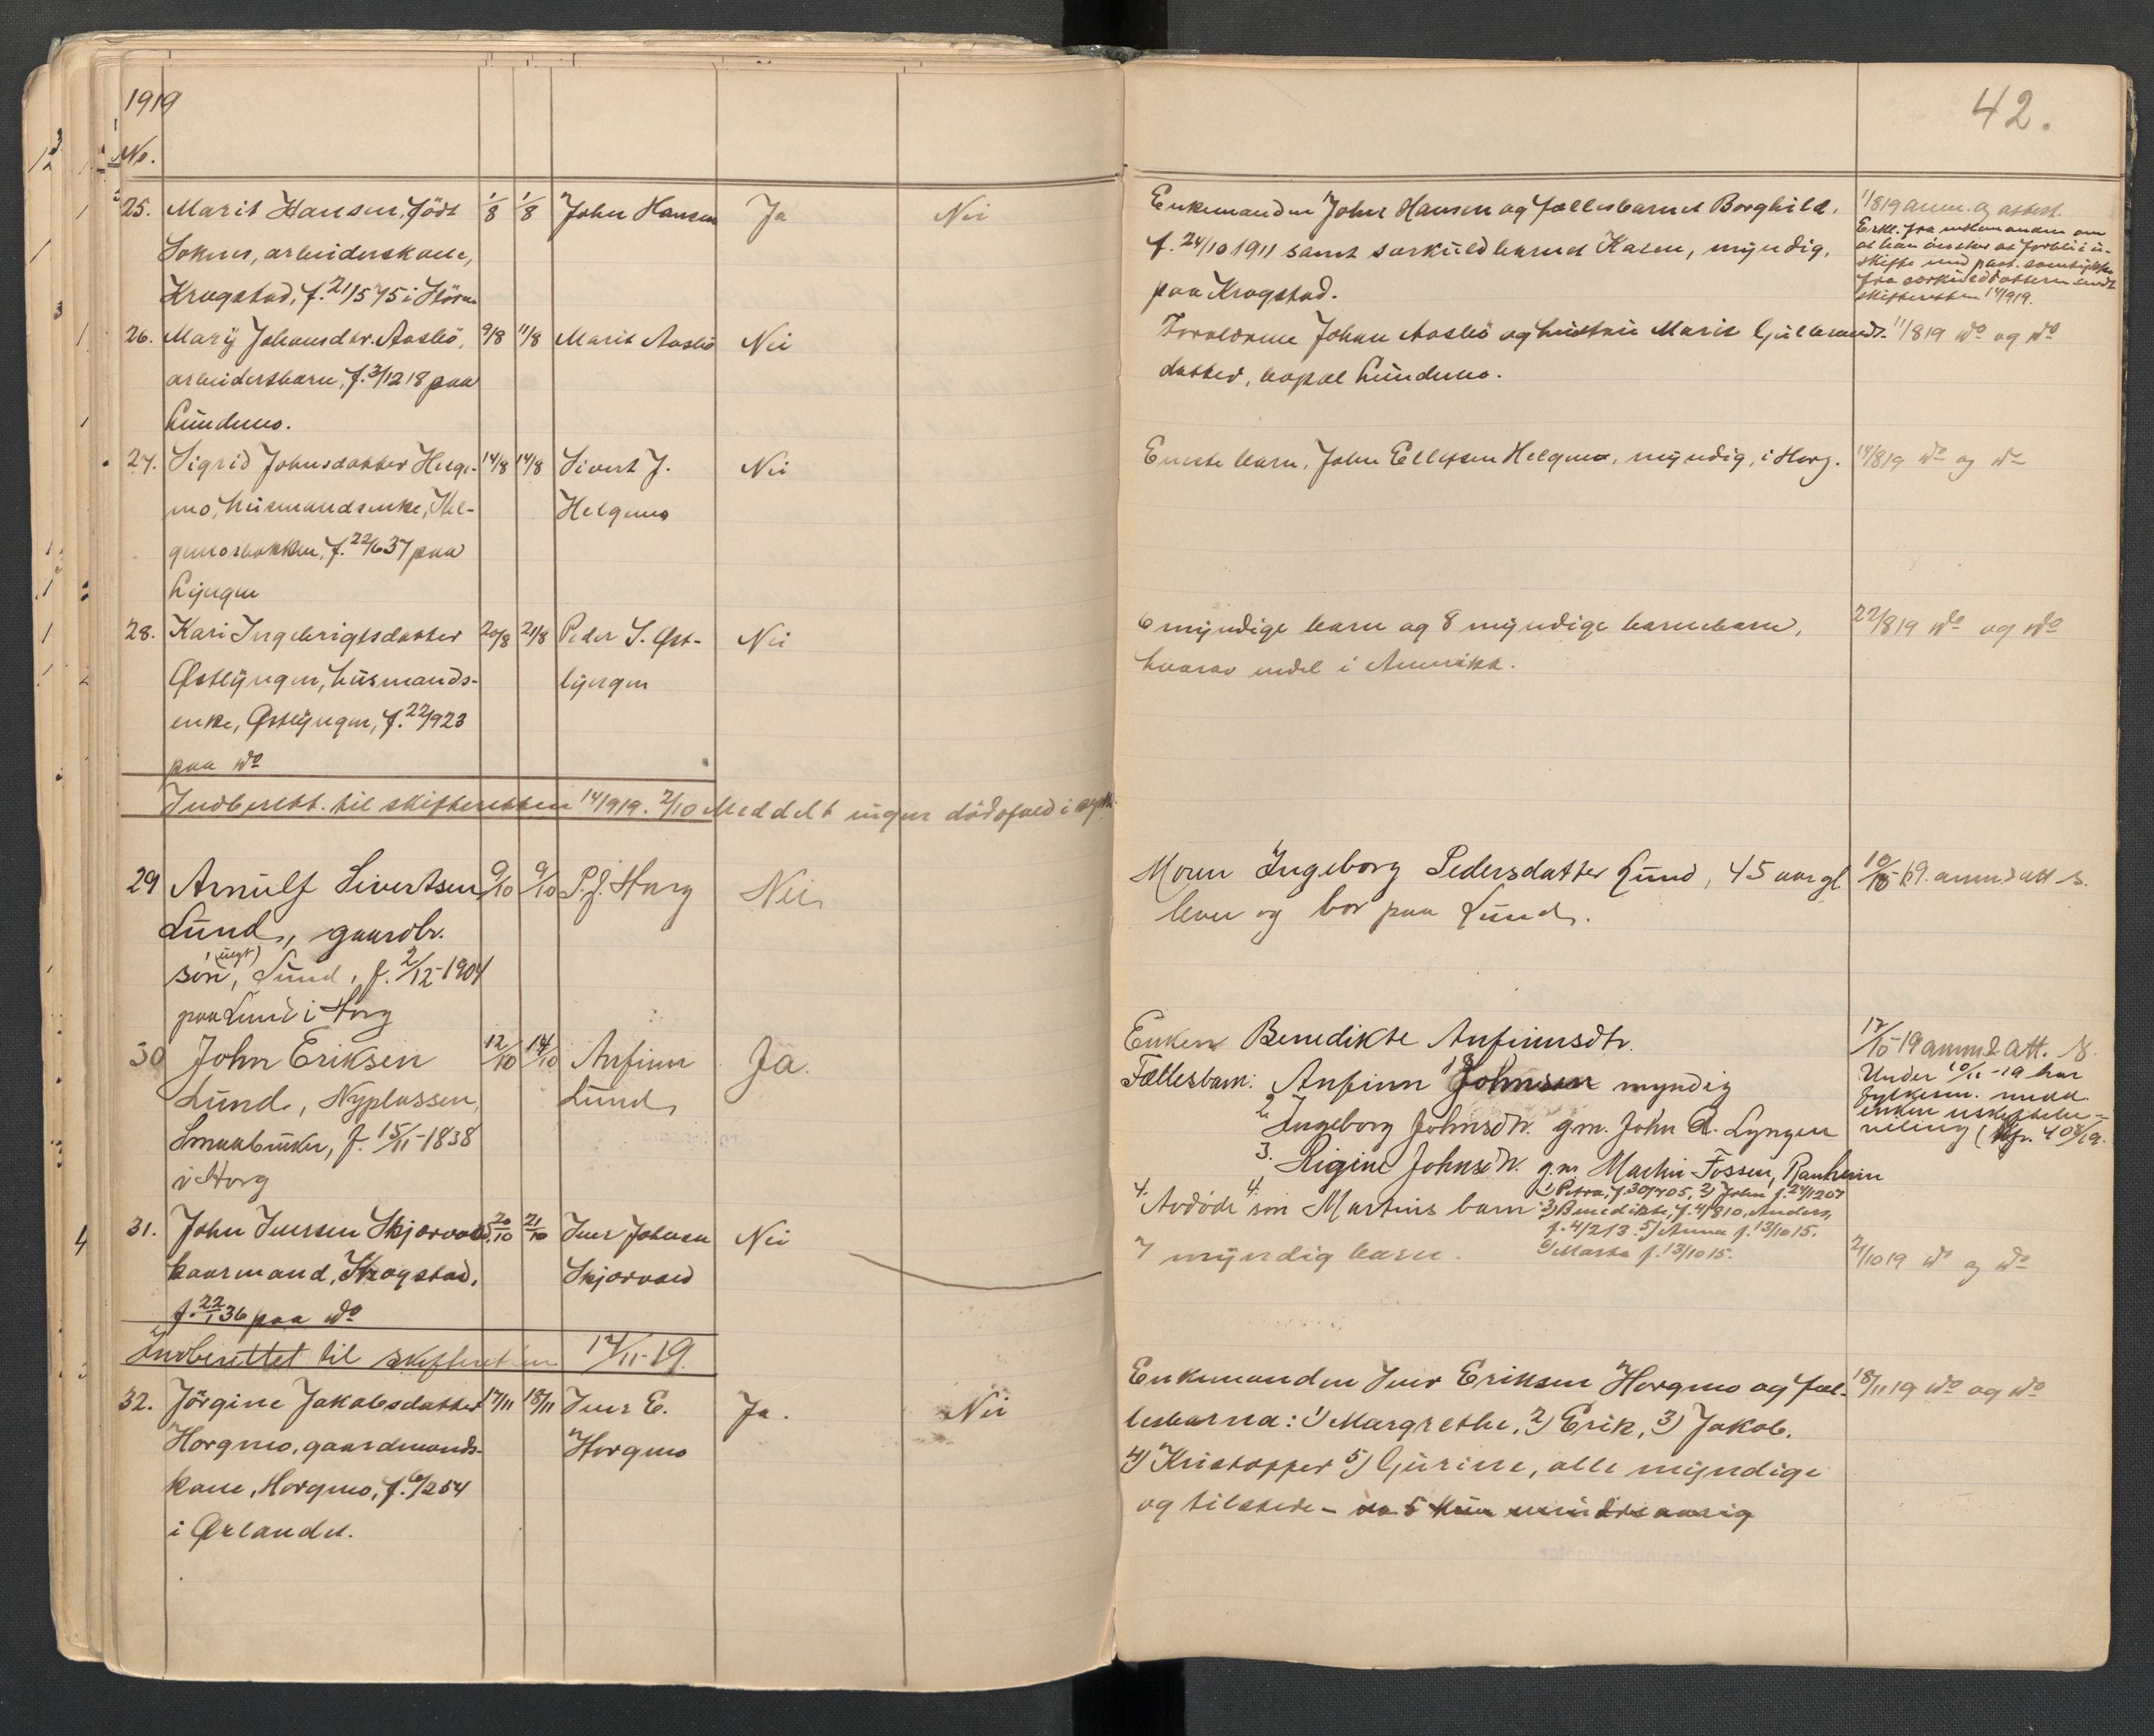 1919
No.
25. Marit Hansen, født 1/8 1/8 John Hansen Ja Nei
Soknes, arbeiderskone,
Krogstad, f. 21/5 75 i Støren
26. Mary Johansdtr. Aasbö, 9/8 11/8 Marit Aasbö Nei
arbeidersbarn, f. 3/12 18 paa
Lundemo.
27. Sigrid Johnsdatter Helge- 14/8 14/8 Sivert J. Nei
mo, husmandsenke, Hel- Helgemo
gemosbakken, f. 22/6 37 paa
Lyngen
28. Kari Ingebrigtsdatter 20/8 21/8 Peder S. Øst- Nei
Østlyngen, husmands- lyngen
enke, Østlyngen, f. 22/9 23
paa do
Indberett. til skifteretten 1/9 19. 2/10 Meddelt ingen dödsfald i septb.
29 Arnulf Sivertsen 9/10 9/10 P. J. Horg Nei
Lund, gaardbr.
sön, (uegt) Lund, f. 2/12-1904
paa Lund i Horg
30 John Eriksen 12/10 14/10 Anfinn Ja.
Lund, Nyplassen, Lund
Smaabruker, f. 15/11-1838
i Horg
31. John Iversen Skjærvold, 20/10 21/10 Iver Johnsen Nei
kaarmand, Krogstad, Skjærvold
f. 22/1 36 paa do
Indberettet til skifteretten 17/11-19.
32. Jörgine Jakobsdatter 17/11 18/11 Iver E. Ja. Nei
Horgmo, gaardmands- Horgmo
kone, Horgmo, f. 6/2 54
i Ørlandet.
42.
Enkemanden John Hansen og fællesbarnet Borghild,
f. 24/10 1911 samt særkuldbarnet Karen, myndig,
paa Krogstad.
1/8 19 anm. og attest.
Erkl. fra enkemanden om
at han önsker at forbli i u-
skifte med paat. samtykke
fra særkulddatteren sendt
skifteretten 1/9 19.
Forældrene Johan Aasbö og hustru Marit Gulbrands- 11/8 19 do og do
datter, bopæl Lundemo.
Eneste barn, John Ellefsen Helgemo, myndig, i Horg. 14/8 19 do og do
6 myndige barn og 8 myndige barnebarn, 22/8 19 do og do
hvorav endel i Amerika.
Moren Ingeborg Pedersdatter Lund, 45 aar gl. 10/10 19. anm. & att s.
lever og bor paa Lund.
Enken Benedikte Anfinnsdtr.
Fællesbarn: 1. Anfinn Johnsen myndig
2. Ingeborg Johnsdtr. g.m. John A. Lyngen
3. Rigine Johnsdtr. g.m. Martin Fossen, Ranheim
4. Avdöde sön Martins barn 1) Petra, f. 30/7 05, 2) John f. 24/12 07
3) Benedikte, f. 4/8 10, Anders,
f. 4/2 13. 5) Anna f. 13/10 15.
6) Marta f. 13/10 15.
12/10-19 anm & att. s.
Under 10/11-19 har
fylkesm. medd.
enken uskiftebe-
villing (Kfr. 408/19.
7 myndig barn. 21/10 19 do og do
Enkemanden Iver Eriksen Horgmo og fæl- 18/11 19 do og do
lesbarna: 1) Margrethe, 2) Erik, 3) Jakob,
4) Kristoffer 5) Gurine, alle myndige
og tilstede - no. 5 kun mindreaarig